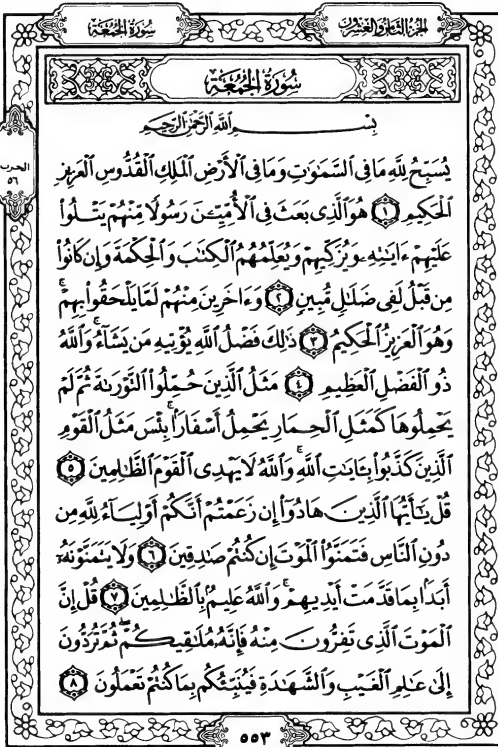 سُورَةُ الجُمُعَة
الجزء الثامن والعشرون
سُورَةُ الجُمُعَة
بِسْمِ ٱللَّهِ ٱلرَّحْمَٰنِ ٱلرَّحِيمِ
الحزب
٥٦
يُسَبِّحُ لِلَّهِ مَا فِى ٱلسَّمَٰوَٰتِ وَمَا فِى ٱلْأَرْضِ ٱلْمَلِكِ ٱلْقُدُّوسِ ٱلْعَزِيزِ
ٱلْحَكِيمِ ١ هُوَ ٱلَّذِى بَعَثَ فِى ٱلْأُمِّيِّۦنَ رَسُولًا مِّنْهُمْ يَتْلُوا۟
عَلَيْهِمْ ءَايَٰتِهِۦ وَيُزَكِّيهِمْ وَيُعَلِّمُهُمُ ٱلْكِتَٰبَ وَٱلْحِكْمَةَ وَإِن كَانُوا۟
مِن قَبْلُ لَفِى ضَلَٰلٍ مُّبِينٍ ٢ وَءَاخَرِينَ مِنْهُمْ لَمَّا يَلْحَقُوا۟ بِهِمْ ۚ
وَهُوَ ٱلْعَزِيزُ ٱلْحَكِيمُ ٣ ذَٰلِكَ فَضْلُ ٱللَّهِ يُؤْتِيهِ مَن يَشَآءُ ۚ وَٱللَّهُ
ذُو ٱلْفَضْلِ ٱلْعَظِيمِ ٤ مَثَلُ ٱلَّذِينَ حُمِّلُوا۟ ٱلتَّوْرَىٰةَ ثُمَّ لَمْ
يَحْمِلُوهَا كَمَثَلِ ٱلْحِمَارِ يَحْمِلُ أَسْفَارًۢا ۚ بِئْسَ مَثَلُ ٱلْقَوْمِ
ٱلَّذِينَ كَذَّبُوا۟ بِـَٔايَٰتِ ٱللَّهِ ۚ وَٱللَّهُ لَا يَهْدِى ٱلْقَوْمَ ٱلظَّٰلِمِينَ ٥
قُلْ يَٰٓأَيُّهَا ٱلَّذِينَ هَادُوٓا۟ إِن زَعَمْتُمْ أَنَّكُمْ أَوْلِيَآءُ لِلَّهِ مِن
دُونِ ٱلنَّاسِ فَتَمَنَّوُا۟ ٱلْمَوْتَ إِن كُنتُمْ صَٰدِقِينَ ٦ وَلَا يَتَمَنَّوْنَهُۥٓ
أَبَدًۢا بِمَا قَدَّمَتْ أَيْدِيهِمْ ۚ وَٱللَّهُ عَلِيمٌۢ بِٱلظَّٰلِمِينَ ٧ قُلْ إِنَّ
ٱلْمَوْتَ ٱلَّذِى تَفِرُّونَ مِنْهُ فَإِنَّهُۥ مُلَٰقِيكُمْ ۖ ثُمَّ تُرَدُّونَ
إِلَىٰ عَٰلِمِ ٱلْغَيْبِ وَٱلشَّهَٰدَةِ فَيُنَبِّئُكُم بِمَا كُنتُمْ تَعْمَلُونَ ٨
٥٥٣